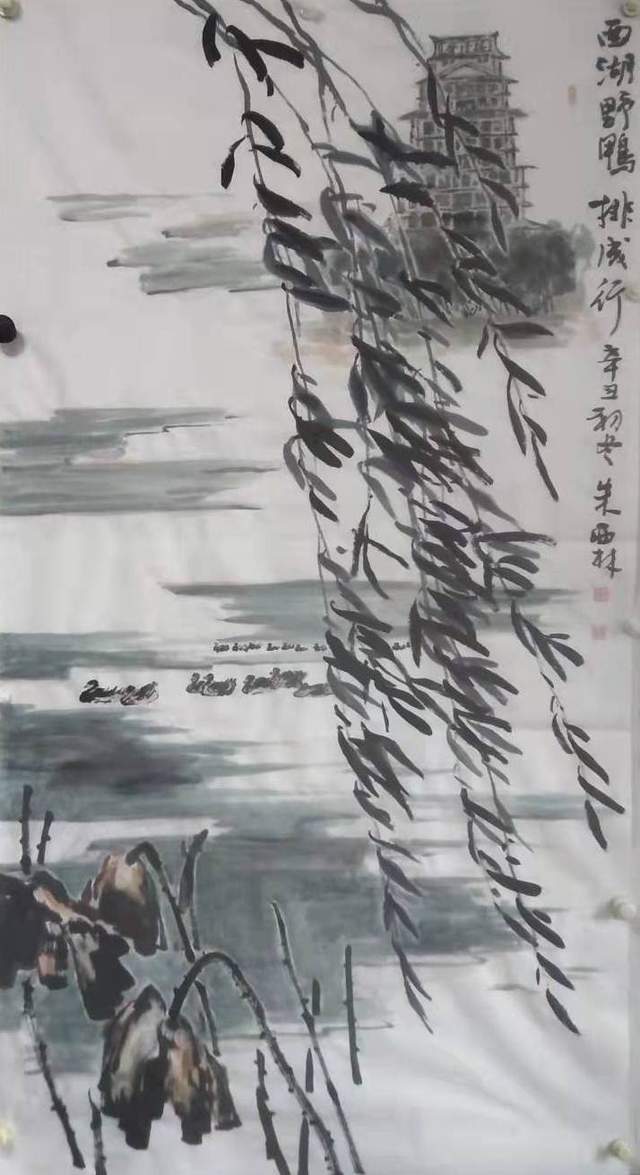 西湖野鴨排成行辛丑初冬朱西林